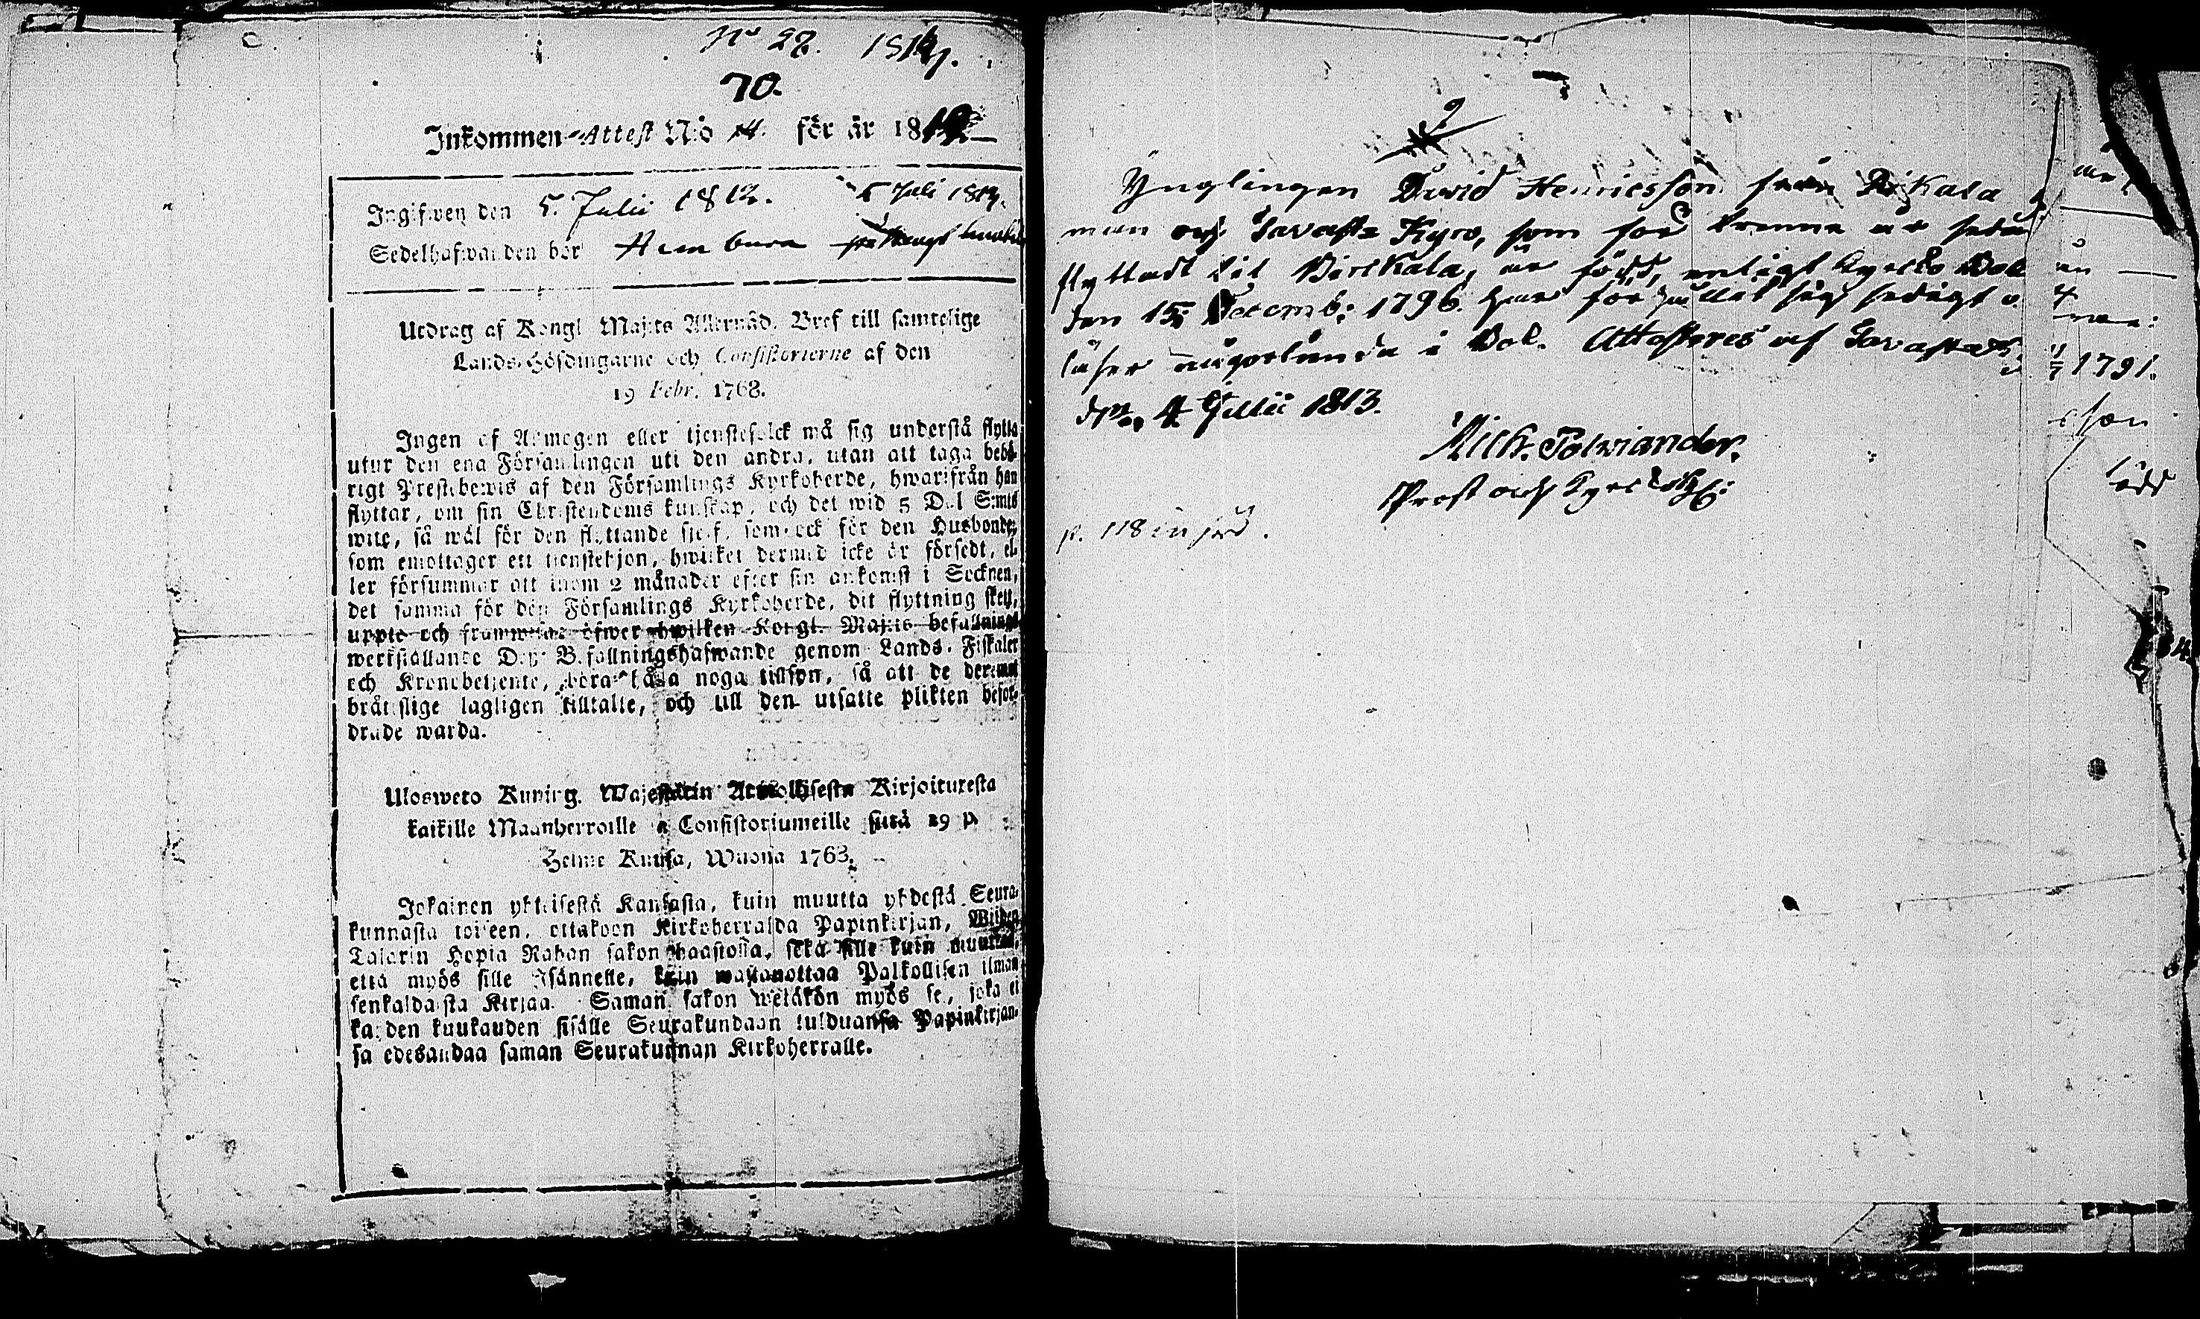 No 27. 1814.
70.
Inkommen Attest N:o 14. för år 1812
Ingifwen den 5. Julii 1812. 5 Juli 1813.
Sedelhafwanden bör
Utdrag af Kongl Maj:ts Allernåd. Bref till samtelige
Lands-Höfdingarne och Consistorierne af den
19 Febr. 1768.
Ingen af Allmogen eller tjenstefolck må sig understå flytta
utur den ena Församlingen uti den andra, utan att taga behö-
rigt Prestebewis af den Församlings Kyrkoherde, hwarifrån han
flyttar, om sin Christendoms kunskap, och det wid 5 Dal S:mts
wite, så wäl för den flyttande sjelf, som ock för den Husbonde,
som emottager ett tjenstehjon, hwilket dermed icke är försedt, el-
ler försummar att inom 2 månader efter sin ankomst i Socknen,
det samma för den Församlings Kyrkoherde, dit flyttning sket,
uppte och framwisa: öfwer hwilken Kongl. Maj:ts befallnings
werkställande Dess Befallningshafwande genom Lands-Fiskaler
och Kronobetjente, böra hålla noga tillsyn, så att de deremot
brätslige lagligen tilltalte, och till den utsatte plikten befor-
drade warda.
Ulosweto Kuning. Majestätin Armollisesta Kirjoituxesta
kaikille Maanherroille ja Consistoriumeille siitä 19 p.
Helme Kuusa, Wuona 1768.
Jokainen yhteisestä Kansasta, kuin muutta yhdestä Seura-
kunnasta toiseen, ottakoon Kirkoherralda Papinkirjan, Wijden
Talarin Hopia Rahan sakon haastolla, sekä sille kuin muuttaa,
että myös sille Isännelle, kuin wastanottaa Palkollisen ilman
senkaldaista Kirjaa. Saman sakon wetäkön myös se, joka ei
kahden kuukauden sisälle Seurakundaan tulduansa Papinkirjan-
sa edesandaa saman Seurakunnan Kirkoherralle.
Ynglingen David Henricsson från Pikala
man och Tavast Kyro, som för trenne år sedan
flyttadt till Birkala, är född, enligt Kyrcko Bok
den 15 Decemb: 1796. har förhållit sig sedigt o.
läser någorlunda i Bok. Attesteres af Tavastk.
den 4 Julii 1813.
Mich. Polviander.
Prost och Kyrckoh:
p. 118
1791.